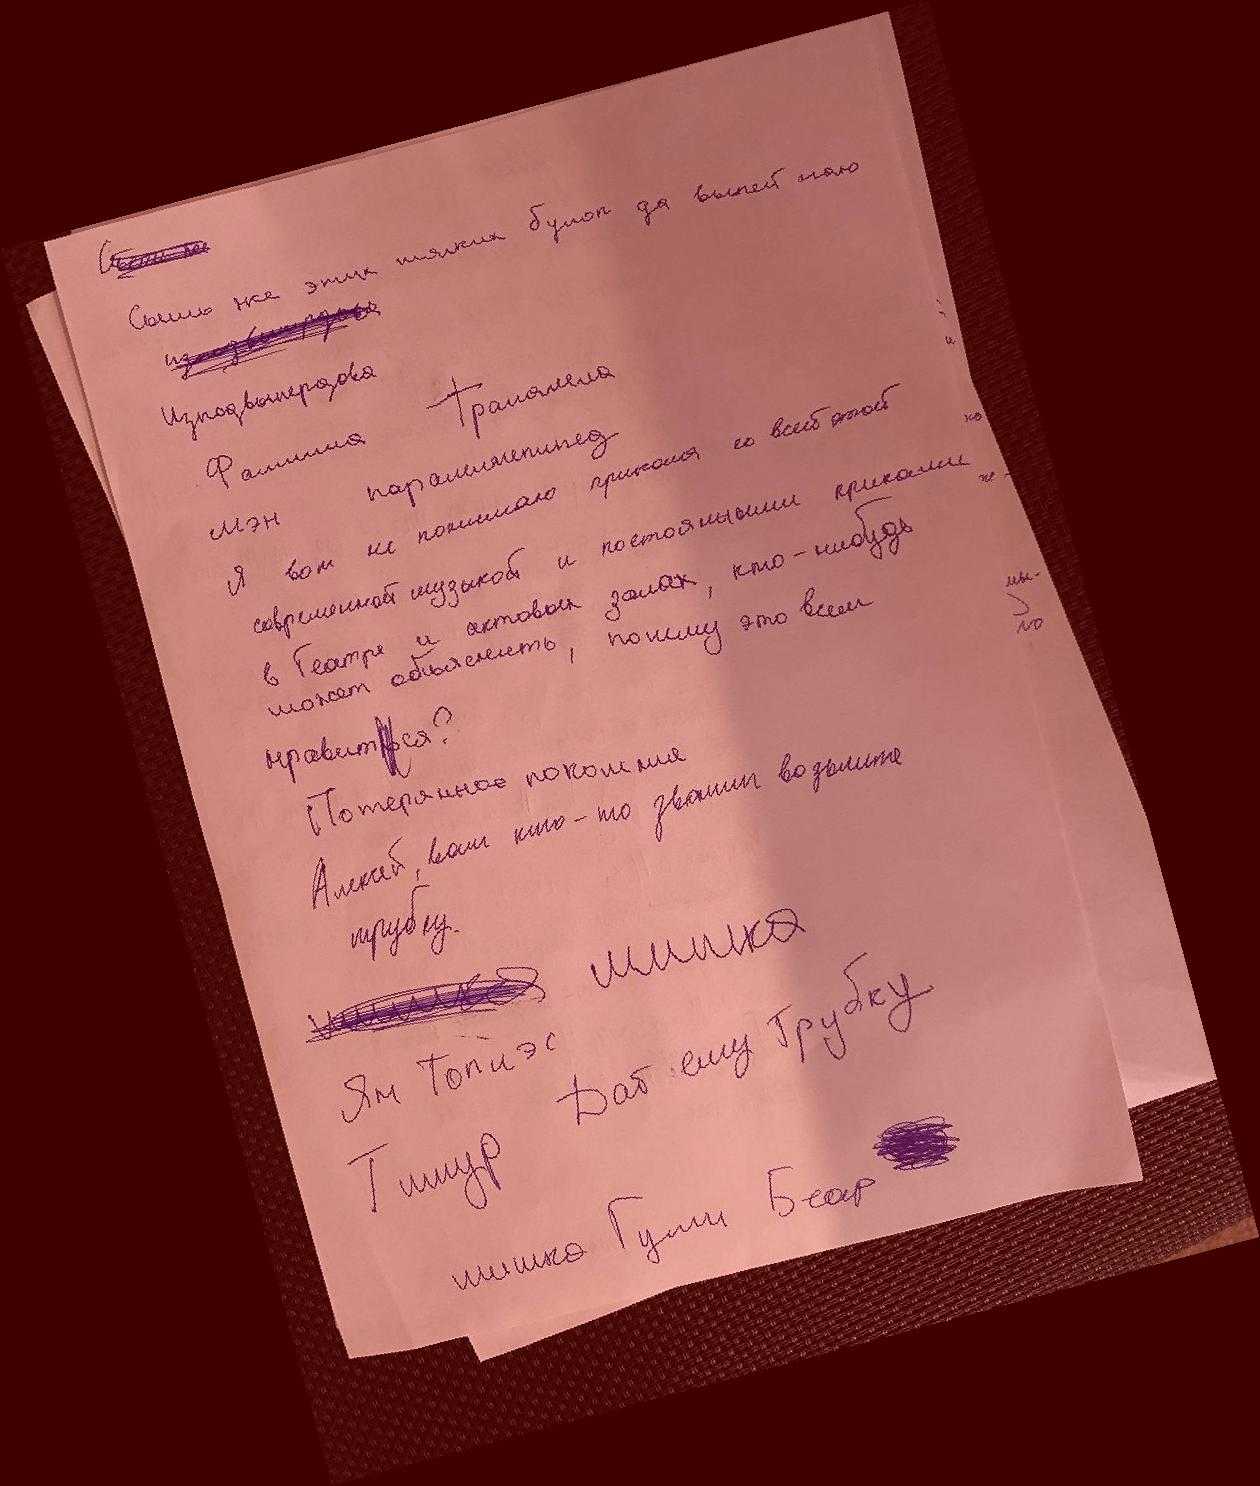 же этих мягких булок да выпей чаю
Изподвыперздва
Фамилия Трапапела
мэн паралимпипед
Я вот не понимаю прикола со всей этой
современной музыкой и постоянными криками
в Театре и актовых залах, кто-нибудь
может объяснить, почему это всем
нравится?
Потерянное поколения
Алексей, вам кто-то звонит возьмите
трубку.
мишка
Ян Топлэс
Тимур Дай ему Трубку
мишка Гумми Беар